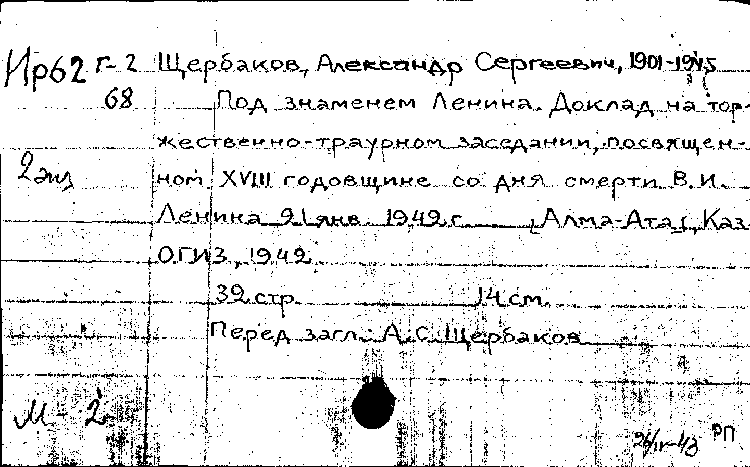 Ир62 г-2 Щербаков, Александр Сергеевич, 1901-1945
68 Под знаменем Ленина. Доклад на тор-
жественно-траурном заседании, посвящен-
2 экз ном XVIII годовщине со дня смерти В.И.
Ленина 21 янв. 1942 г. [Алма-Ата], Каз
ОГИЗ, 1942
32 стр. 14 см.
Перед загл.: А.С. Щербаков
М-2
РП